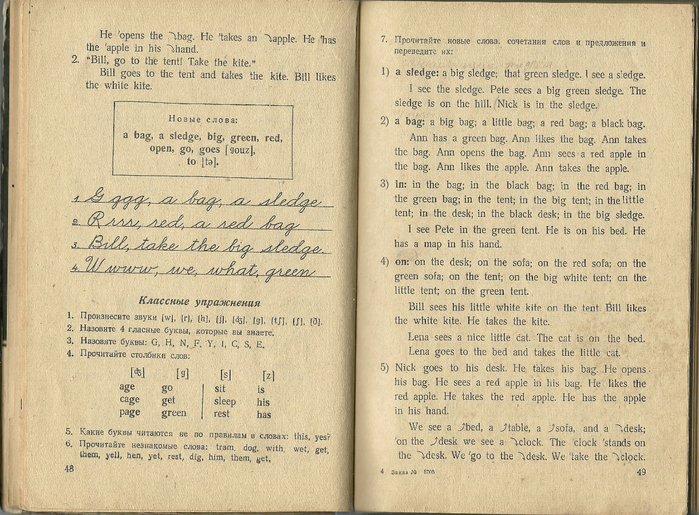 He ˈopens the ↘bag. He ˈtakes an ↘apple. He ˈhas
the ˈapple in his ↘hand.
2. "Bill, go to the tent! Take the kite."
Bill goes to the tent and takes the kite. Bill likes
the white kite.
Новые слова:
a bag, a sledge, big, green, red,
open, go, goes [gouz],
to [tə].
1. G ggg, a bag, a sledge
2. Rrrr, red, a red bag
3. Bill, take the big sledge.
4. W www, we, what, green
Классные упражнения
1. Произнесите звуки [w], [r], [h], [j], [ʤ], [g], [tʃ], [ʃ], [ð].
2. Назовите 4 гласные буквы, которые вы знаете.
3. Назовите буквы: G, H, N, F, Y, I, C, S, E.
4. Прочитайте столбики слов:
[ʤ] [g] [s] [z]
age go sit is
cage get sleep his
page green rest has
5. Какие буквы читаются не по правилам в словах: this, yes?
6. Прочитайте незнакомые слова: tram, dog, with, wet, get,
them, yell, hen, yet, rest, dig, him, them, get.
48
7. Прочитайте новые слова, сочетания слов и предложения и
переведите их:
1) a sledge: a big sledge; that green sledge. I see a sledge.
I see the sledge. Pete sees a big green sledge. The
sledge is on the hill. Nick is in the sledge.
2) a bag: a big bag; a little bag; a red bag; a black bag.
Ann has a green bag. Ann likes the bag. Ann takes
the bag. Ann opens the bag. Ann sees a red apple in
the bag. Ann likes the apple. Ann takes the apple.
3) in: in the bag; in the black bag; in the red bag; in
the green bag; in the tent; in the big tent; in the little
tent; in the desk; in the black desk; in the big sledge.
I see Pete in the green tent. He is on his bed. He
has a map in his hand.
4) on: on the desk; on the sofa; on the red sofa; on the
green sofa; on the tent; on the big white tent; on the
little tent; on the green tent.
Bill sees his little white kite on the tent. Bill likes
the white kite. He takes the kite.
Lena sees a nice little cat. The cat is on the bed.
Lena goes to the bed and takes the little cat.
5) Nick goes to his desk. He takes his bag. He opens
his bag. He sees a red apple in his bag. He likes the
red apple. He takes the red apple. He has the apple
in his hand.
We see a ↗bed, a ↗table, a ↗sofa, and a ↘desk;
ˈon the ↗desk we see a ↘clock. The ˈclock ˈstands on
the ↘desk. We ˈgo to the ↘desk. We ˈtake the ↘clock.
4 Заказ №
49